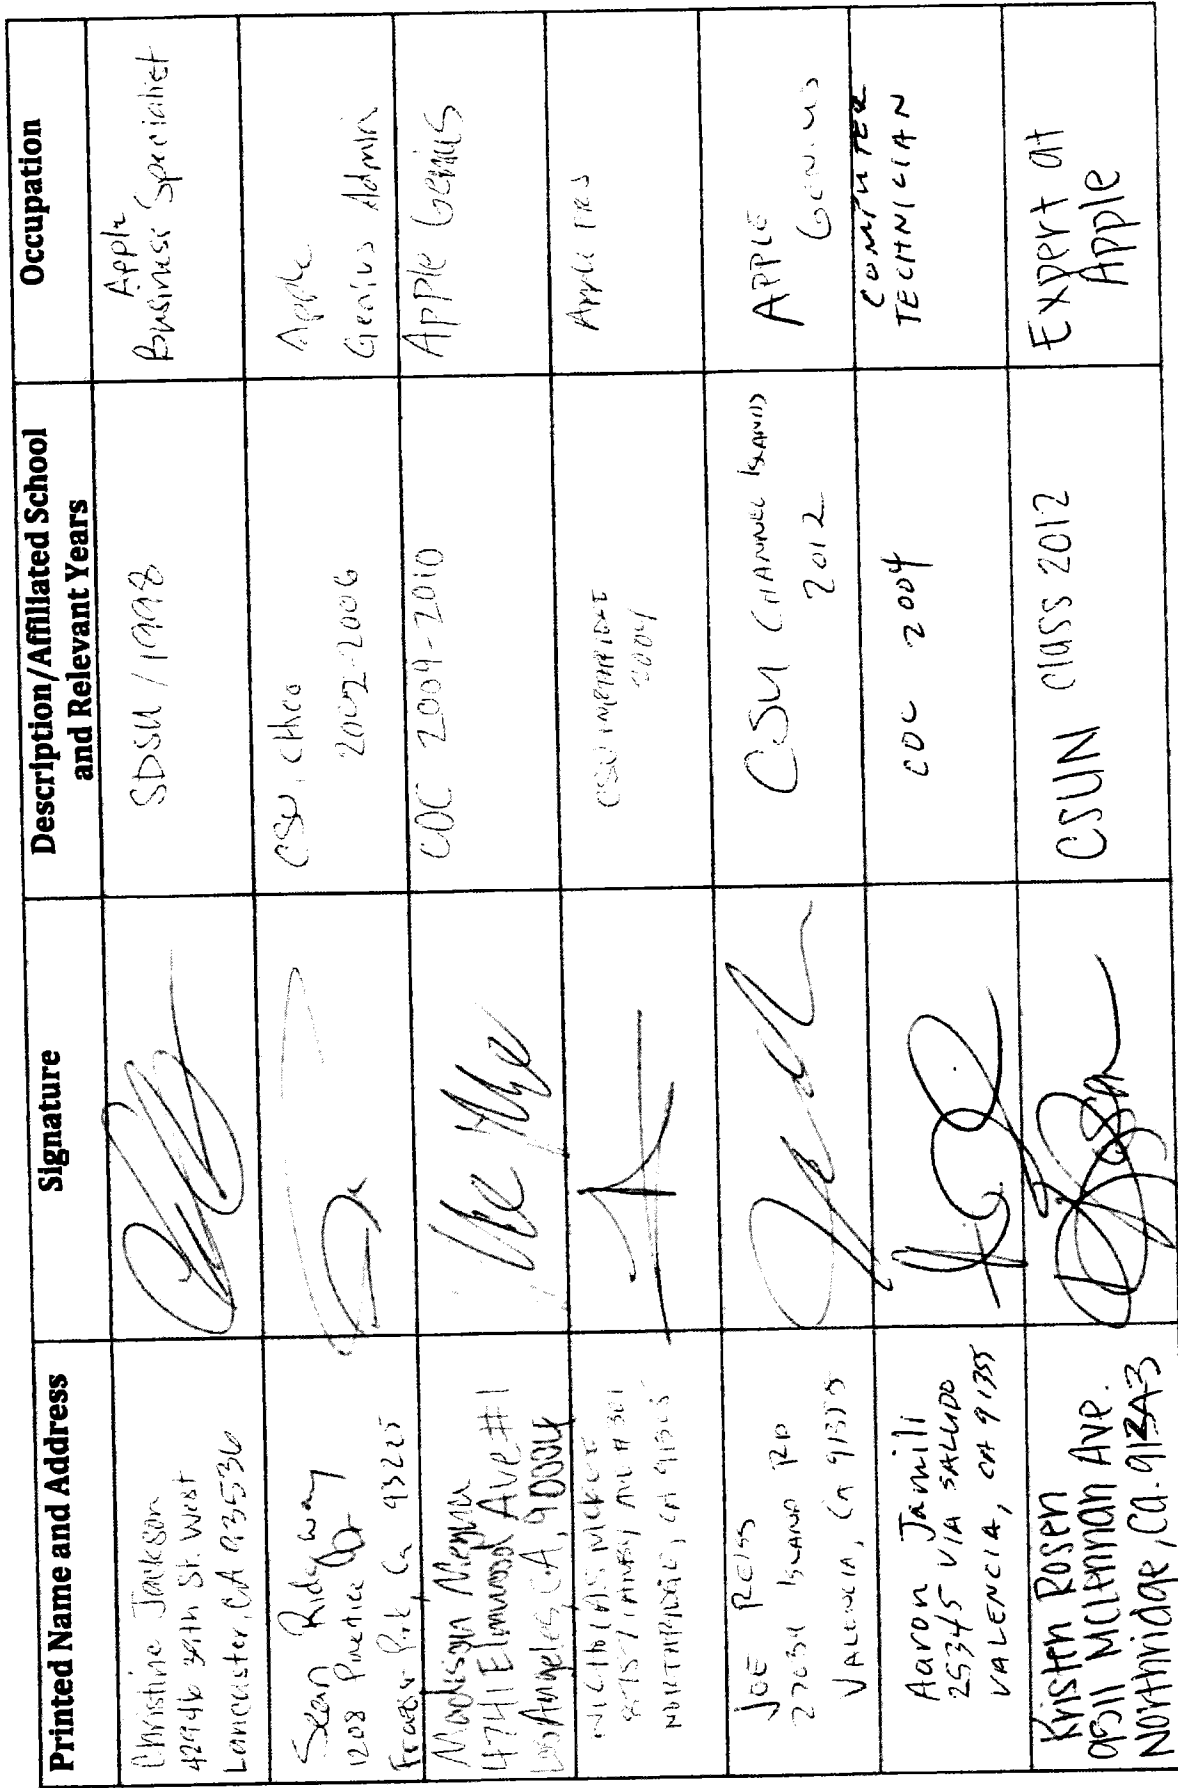 Printed Name and Address
Signature
Description/Affiliated School
and Relevant Years
Occupation
Christine Jackson
42946 39th St. West
Lancaster, CA 93536
SDSU / 1998
Apple
Business Specialist
Sean Ridgway
1208 Dr
Frazier Park, Ca 93225
CSU, Chico
2002-2006
Apple
Genius Admin
Madison
4741 Elmwood Ave #1
Los Angeles, CA, 90004
COC 2009-2010
Apple Genius
NICHOLAS
NORTHRIDGE, CA
CSU NORTHRIDGE
Apple FRS
JOE REISS
ISLAND RD
VALENCIA, CA 91355
CSU CHANNEL ISLANDS
2012
APPLE
GENIUS
Aaron Jamili
25345 VIA SALUDO
VALENCIA, CA 91355
COC 2004
COMPUTER
TECHNICIAN
Kristen Rosen
9511 McLennan Ave.
Northridge, Ca. 91343
CSUN class 2012
Expert at
Apple